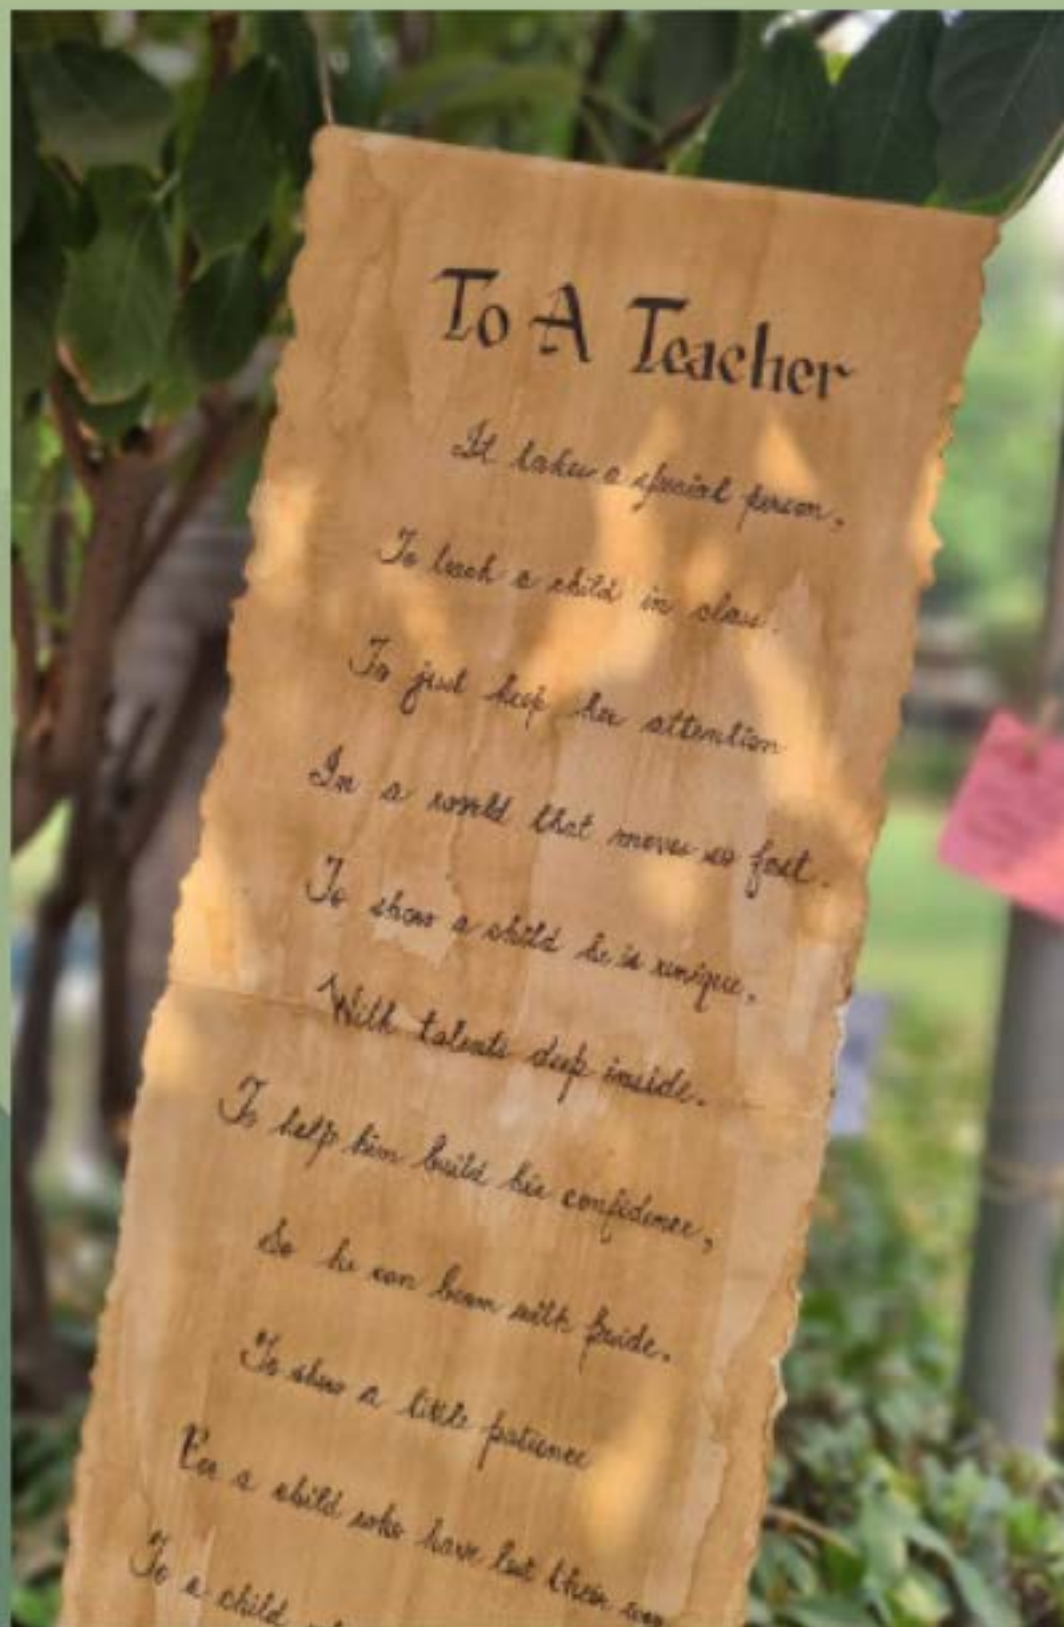 To A Teacher
It takes a special person,
To teach a child in class.
To just keep his attention
In a world that moves so fast.
To show a child he is unique,
With talents deep inside.
To help him build his confidence,
So he can beam with pride.
To show a little patience
For a child who have lost their way
To a child